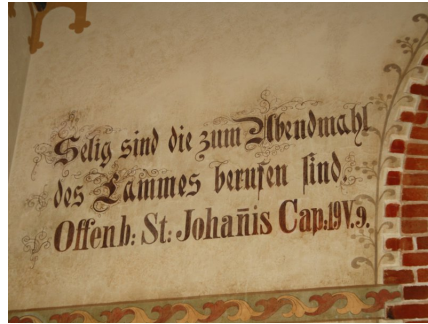 Selig sind die zum Abendmahl
des Lammes berufen sind.
Offenb: St: Johan̄is Cap: 19 V. 9.